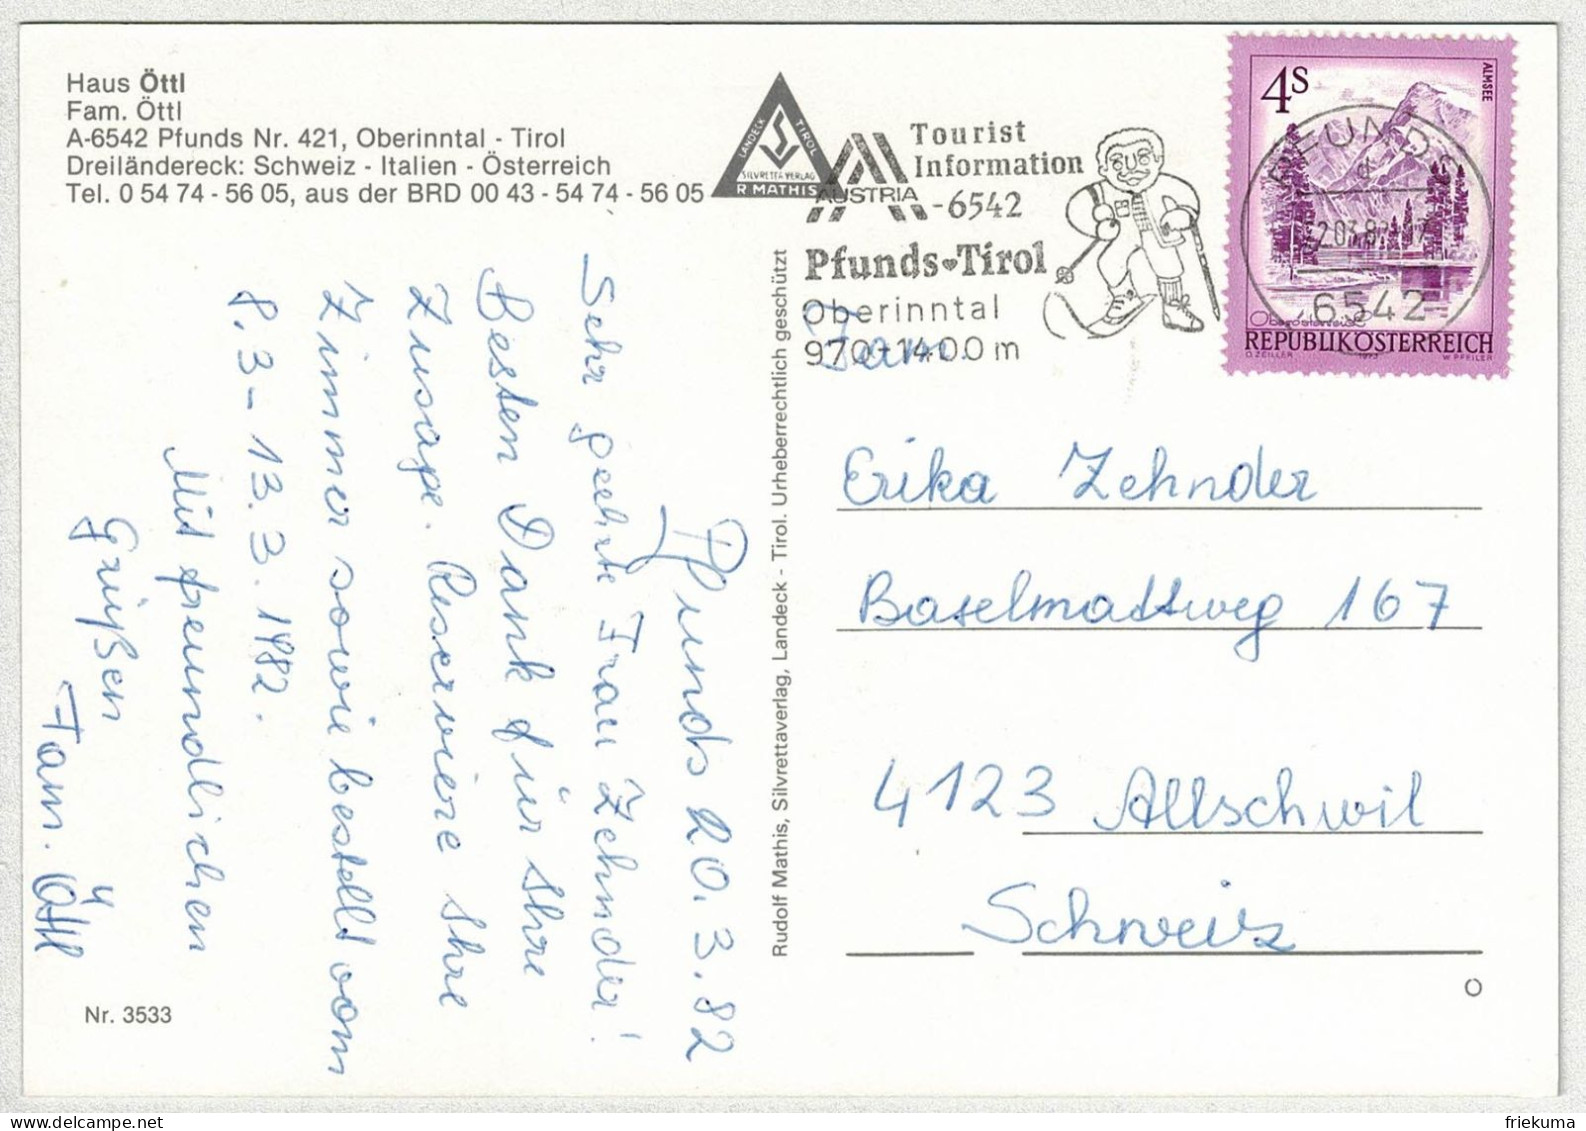 Haus Öttl
Fam. Öttl
A-6542 Pfunds Nr. 421, Oberinntal - Tirol
Dreiländereck: Schweiz - Italien - Österreich
Tel. 0 54 74 - 56 05, aus der BRD 00 43 - 54 74 - 56 05
LANDECK TIROL
SILVRETTA VERLAG
R. MATHIS
AUSTRIA
Tourist
Information
-6542
Pfunds Tirol
Oberinntal
970-1400 m
4S
ALMSEE
PFUNDS
d
6542
Oberösterreich
REPUBLIK ÖSTERREICH
O. ZEILLER 1973 W. PFEILER
Pfunds 20.3.82
Sehr geehrte Frau Zehnder!
Besten Dank für Ihre
Zusage. Reserviere Ihre
Zimmer sowie bestellt vom
8.3 - 13.3.1982.
Mit freundlichen
Grüßen
Fam. Öttl
Rudolf Mathis, Silvrettaverlag, Landeck - Tirol. Urheberrechtlich geschützt
Fam.
Erika Zehnder
Baselmattweg 167
4123 Allschwil
Schweiz
Nr. 3533
friekuma